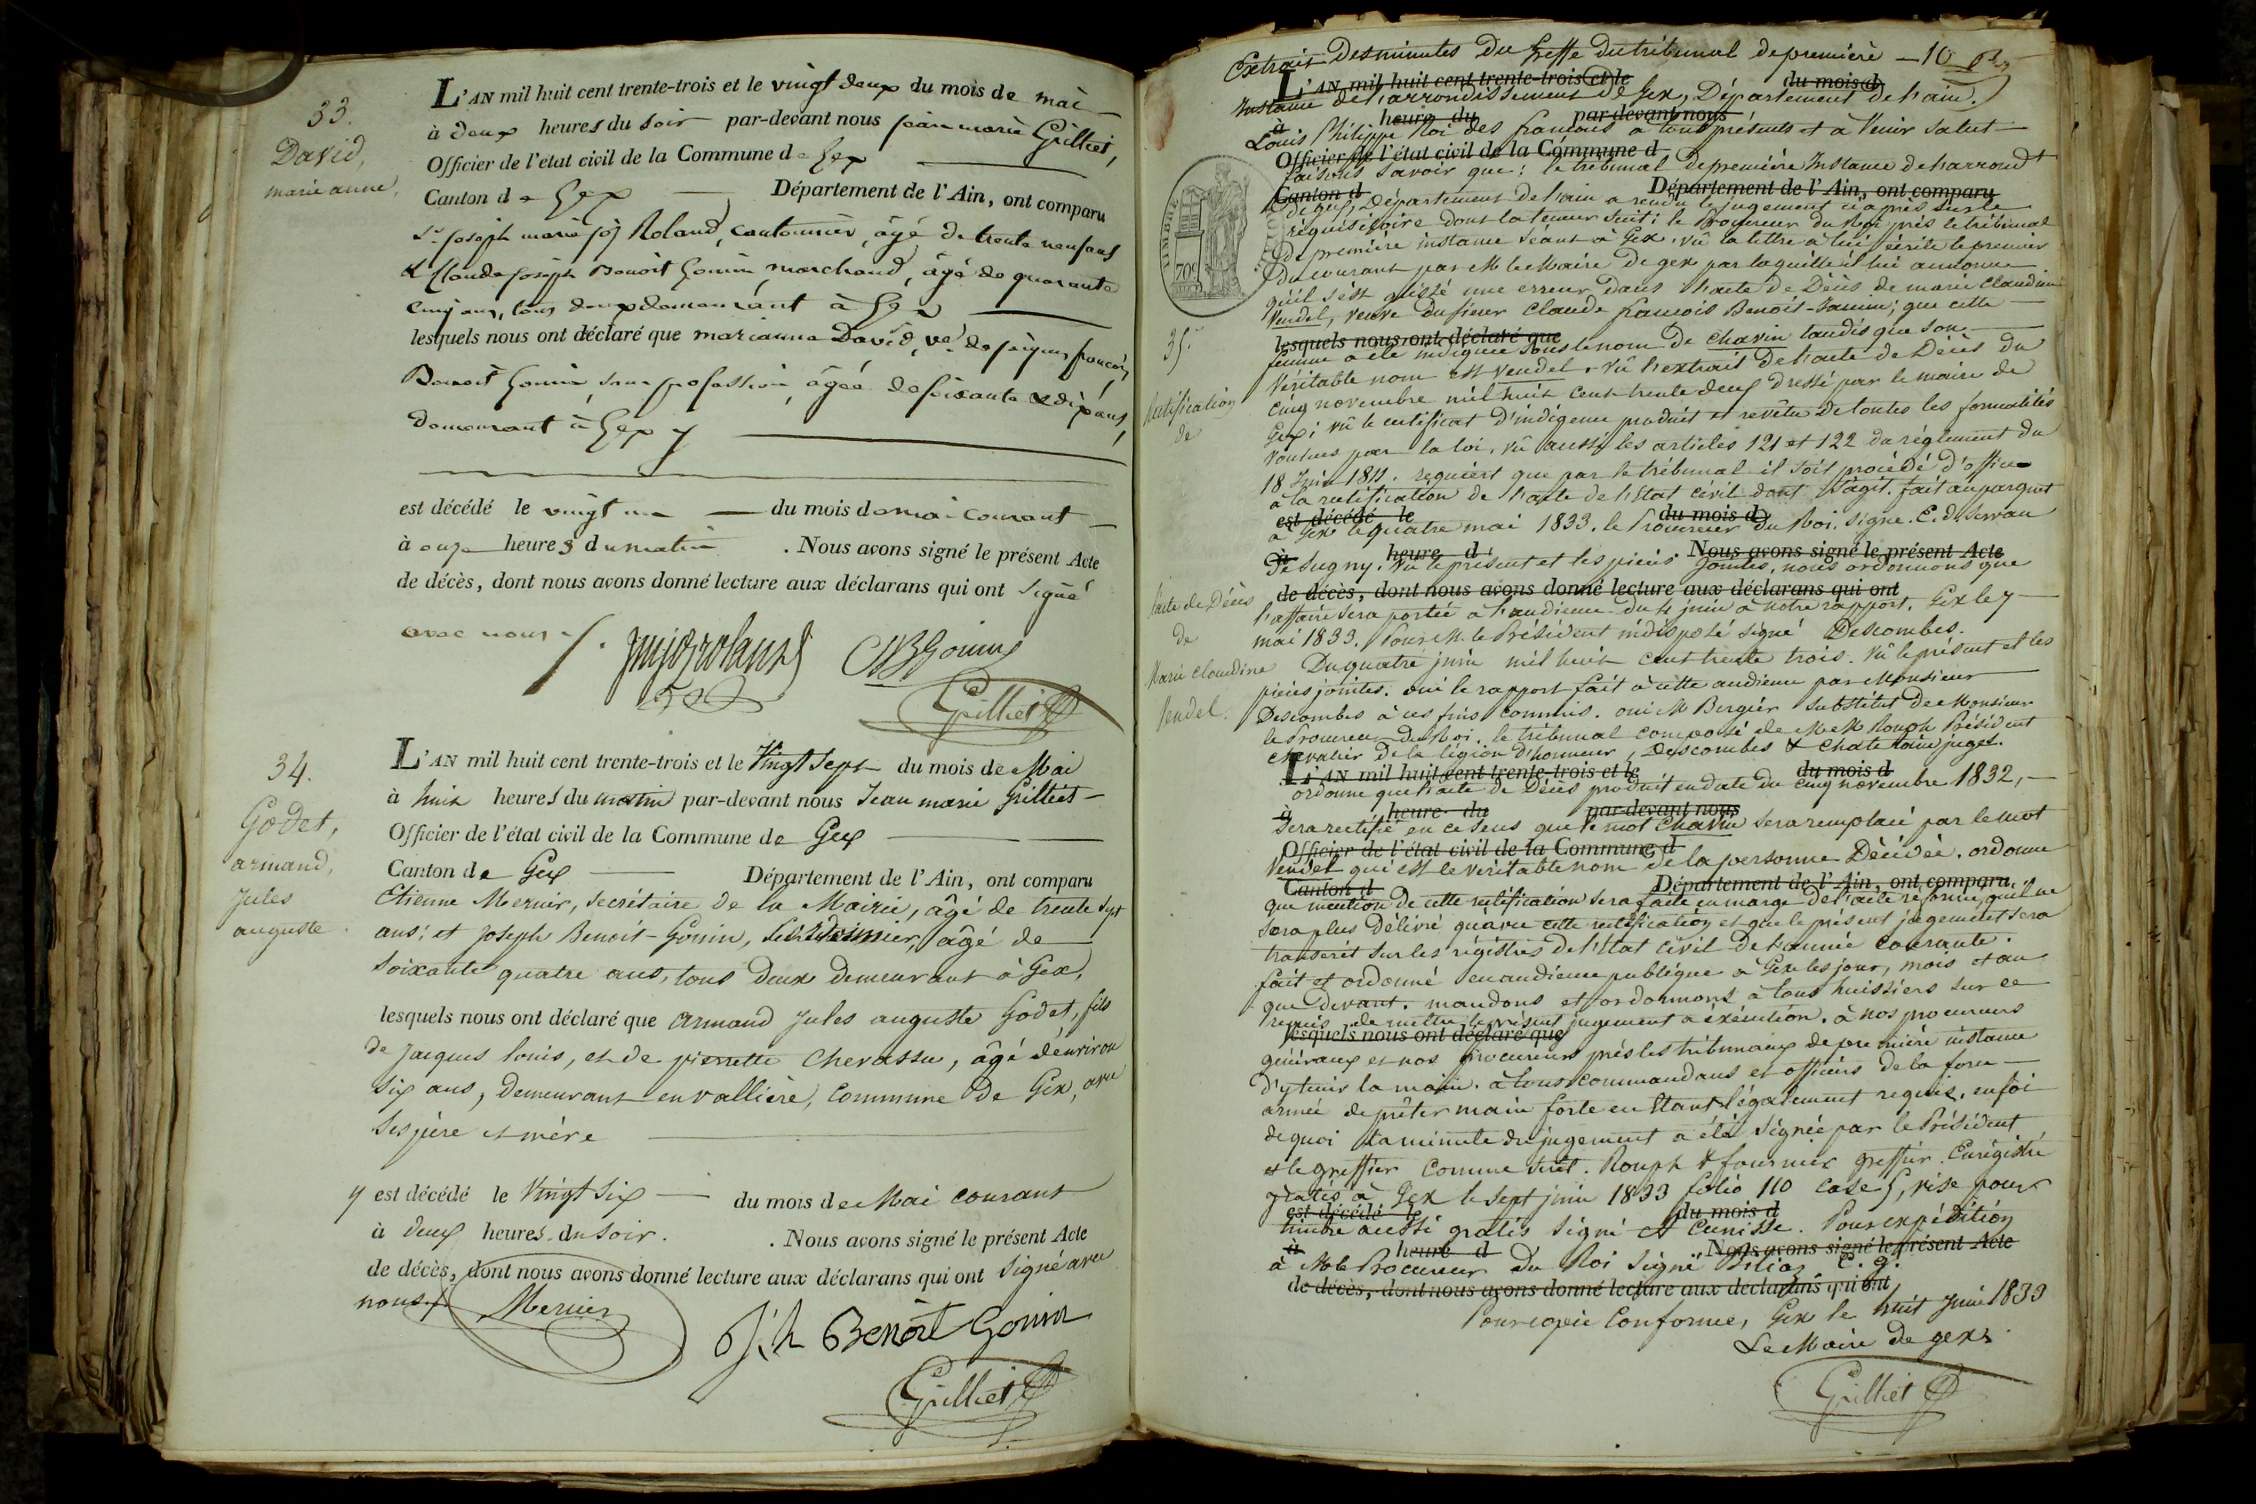 33.
David,
marie anne,
L'AN mil huit cent trente-trois et le vingt deux du mois de mai
à deux heures du soir par-devant nous jean marie Gilliet,
Officier de l'état civil de la Commune d Gex
Canton d Gex Département de l'Ain, ont comparu
Sr joseph marie Roland, cantonnier, âgé de trente neuf ans
& Claude joseph Benoit Gonin, marchand, âgé de quarante
cinq ans, tous deux demeurant à Gex
lesquels nous ont déclaré que marianne David, ve de françois
Benoit Gonin, sans profession, âgée de soixante & dix ans,
demeurant à Gex
est décédé le vingt un du mois de mai courant
à onze heures du matin . Nous avons signé le présent Acte
de décès, dont nous avons donné lecture aux déclarans qui ont signé
avec nous
Gilliet
34.
Godet,
armand,
Jules
auguste.
L'AN mil huit cent trente-trois et le Vingt Sept du mois de Mai
à huit heures du matin par-devant nous Jean marie Gilliet
Officier de l'état civil de la Commune de Gex
Canton de Gex Département de l'Ain, ont comparu
Etienne Mernier, secrétaire de la Mairie, âgé de trente sept
ans; et Joseph Benoit-Gonin, âgé de
soixante quatre ans, tous deux demeurant à Gex,
lesquels nous ont déclaré que armand Jules auguste Godet, fils
de Jacques louis, et de pierrette Chevassu, âgé d'environ
six ans, demeurant en vallière, commune de Gex, avec
ses père et mère
y est décédé le Vingt six du mois de Mai courant
à deux heures du soir. . Nous avons signé le présent Acte
de décès, dont nous avons donné lecture aux déclarans qui ont signé avec
nous
Mernier
Jh Benoit Gonin
Gilliet
Extrait Des minutes Du Greffe du tribunal de première 10
L'AN mil huit cent trente-trois et le du mois d
Instance de l'arrondissement de Gex, Département de l'ain.
à heure du par-devant nous
Louis Philippe Roi des français à tous présents et à Venir salut
Officier de l'état civil de la Commune d
faisons savoir que: le tribunal de première Instance de l'arrondt
Canton d Département de l'Ain, ont comparu
de gex, Département de l'ain a rendu le jugement ci après sur le
réquisitoire dont la teneur suit: le Procureur du Roi près le tribunal
de première instance séant à Gex. vû la lettre à lui écrite le premier
du courant par M le Maire de gex par laquelle il lui annonce
qu'il s'est glissé une erreur dans l'acte de Décès de marie Claudine
Vendel, veuve du sieur Claude françois Benoit-Janin; que cette
lesquels nous ont déclaré que
femme a été indiquée sous le nom de Chavin tandis que son
Véritable nom est Vendel. vû l'extrait de l'acte de Décès du
cinq novembre mil huit cent trente deux dressé par le maire de
Gex; vû le certificat d'indigence produit et revêtu de toutes les formalités
voulues par la loi. vû aussi les articles 121 et 122 du réglement du
18 Juin 1811. requiert que par le tribunal il soit procédé d'office
à la rectification de l'acte de l'Etat civil dont s'agit. fait au parquet
est décédé le du mois d
à Gex le quatre mai 1833. le Procureur du Roi. signé. E. d. Servan
à heure d Nous avons signé le présent Acte
de Sugny. vu le présent et les pièces jointes, nous ordonnons que
de décès, dont nous avons donné lecture aux déclarans qui ont
l'affaire sera portée à l'audience du 4 juin à notre rapport. Gex le 7
mai 1833. Pour M. le Président indisposé signé Descombes.
Du quatre juin mil huit cent trente trois. vû le présent et les
pièces jointes. oui le rapport fait à cette audience par Monsieur
Descombes à ces fins commis. oui M Bergier substitut de Monsieur
le Procureur du Roi. le tribunal composé de MM Rouph Président
chevalier de la légion d'honneur, Descombes & Chatelain juges.
L'AN mil huit cent trente-trois et le du mois d
ordonne que l'acte de Décès produit en date du cinq novembre 1832,
à heure du par-devant nous
sera rectifié en ce sens que le mot Chavin sera remplacé par le mot
Officier de l'état civil de la Commune d
Vendel qui est le véritable nom de la personne Décédée. ordonne
Canton d Département de l'Ain, ont comparu
que mention de cette rectification sera faite en marge de l'acte réformé, qu'il ne
sera plus délivré qu'avec cette rectification et que le présent jugement sera
transcrit sur les régistres de l'état civil de l'année courante.
fait et ordonné en audience publique à Gex les jour, mois et an
que devant. mandons et ordonnons à tous huissiers sur ce
requis de mettre le présent jugement à exécution. à nos procureurs
lesquels nous ont déclaré que
généraux et nos procureurs près les tribunaux de première instance
d'y tenir la main. à tous commandans et officiers de la force
armée de prêter main forte en étant légalement requis. en foi
de quoi la minute du jugement a été signée par le Président
et le greffier comme suit. Rouph & fournier greffier. Enrégistré
gratis à Gex le sept juin 1833 folio 110 case 5, visé pour
est décédé le du mois d
timbre aussi gratis signé Cunisse. Pour expédition
à heure d Nous avons signé le présent Acte
à M le Procureur Du Roi signé C. g.
de décès, dont nous avons donné lecture aux déclarans qui ont
Pour copie conforme, Gex le huit Juin 1833
Le Maire de gex
Gilliet
TIMBRE
ROYAL
70c
35.
Rectification
de
l'acte de Décès
de
Marie claudine
Vendel.